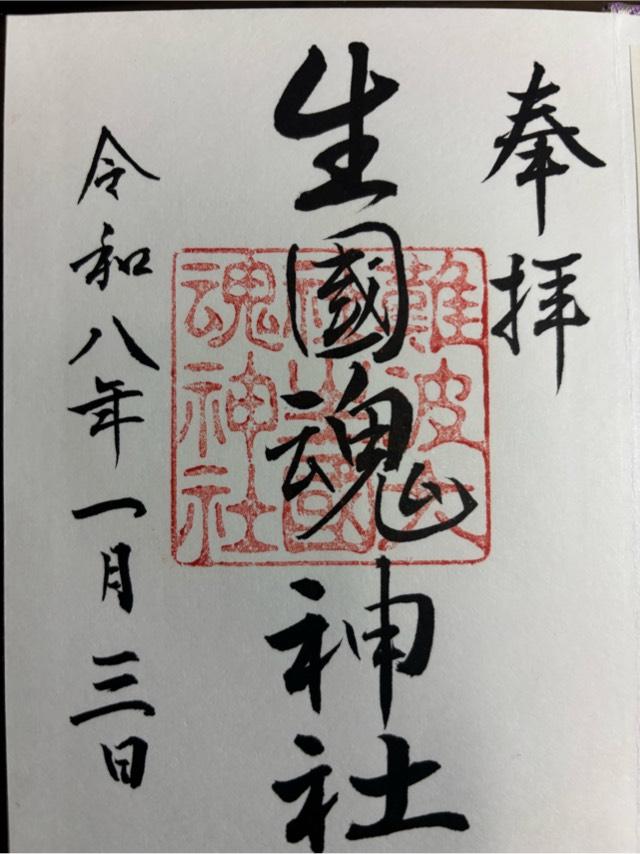 奉拝
生國魂神社
難波大社生國魂神社
令和八年一月三日